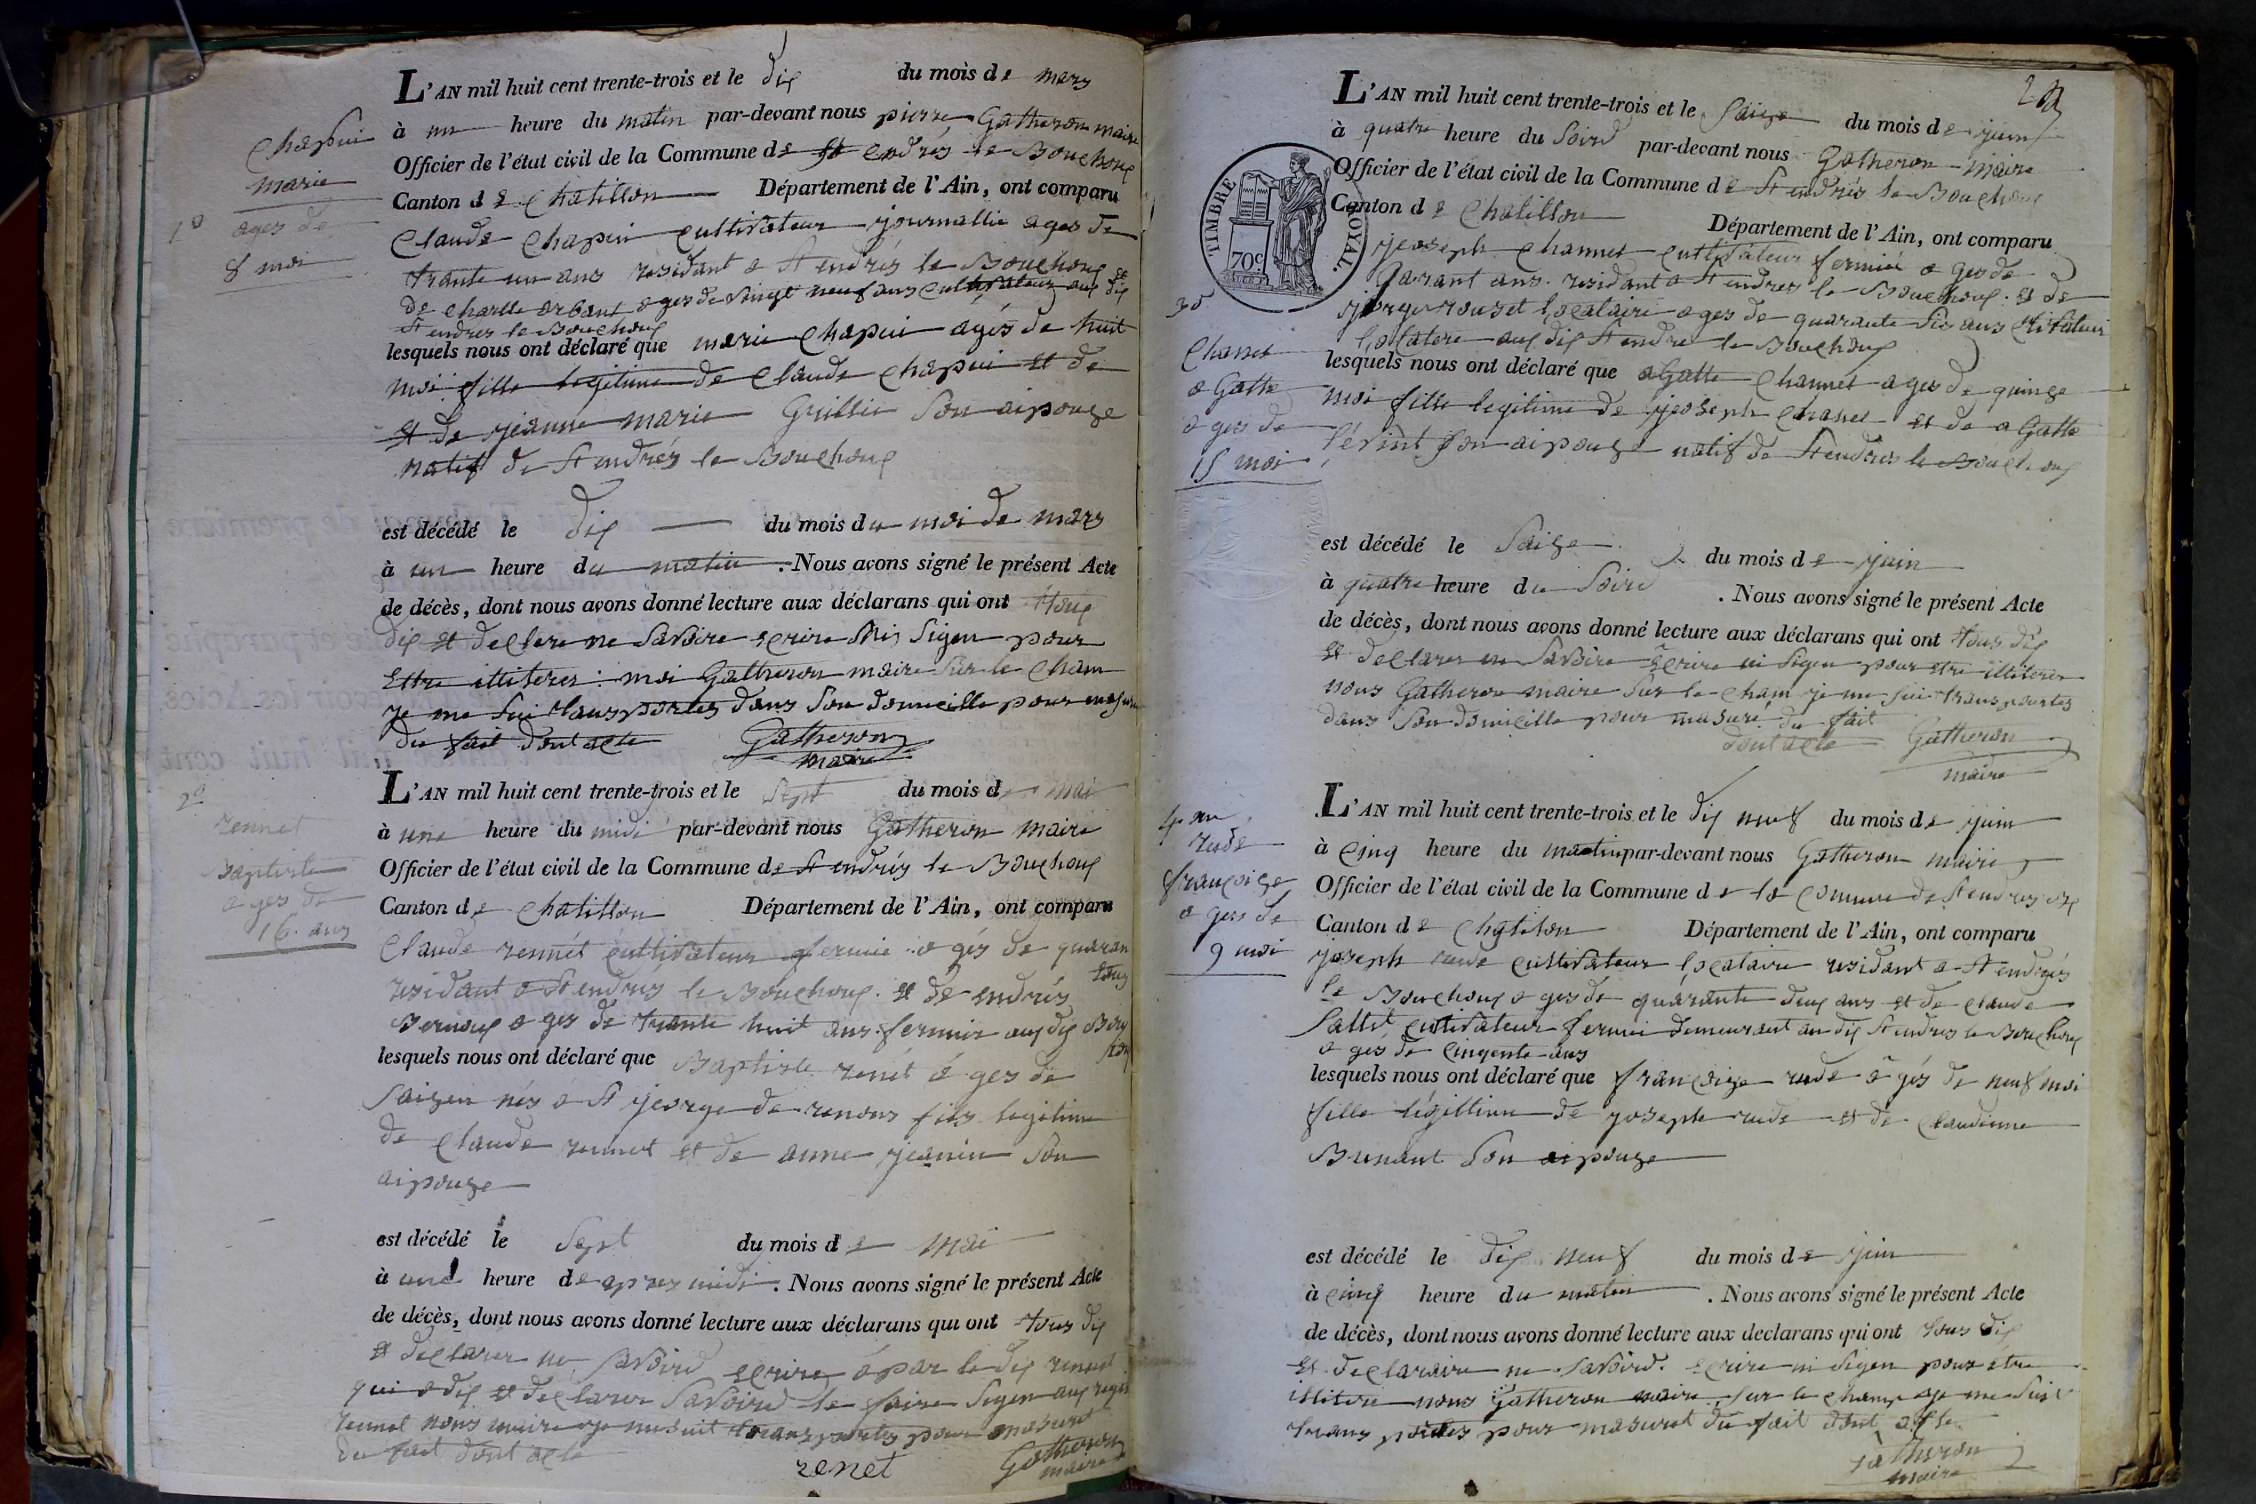 Chapui
marie
1º ages de
8 moi
L'AN mil huit cent trente-trois et le dix du mois de mars
à un heure du matin par-devant nous pierre Gatheron maire
Officier de l'état civil de la Commune de St endrés le Bouchoux
Canton de Chatillon Département de l'Ain, ont comparu
Claude Chapui cultivateur journallié ages de
trante un ans residant a St endrés le Bouchoux et
de Charlle ages de vingt neuf ans cultivateur aux dix
St endres le Bouchoux
lesquels nous ont déclaré que marie Chapui agés de huit
moi fille legitime de Claude Chapui et de
et de jeanne marie Guillie son aipouze
natif de St endrés le Bouchoux
est décédé le dix du mois du moi de mars
à un heure du matin. Nous avons signé le présent Acte
de décès, dont nous avons donné lecture aux déclarans qui ont tous
dix et declere ne savoire ecrire ni sigen pour
ettre illiteres: moi Gatheron maire sur le cham
je me sui transportes dans son domicille pour
du fait dont acte Gatheron
maire
2º
rennet
baptiste
ages de
16 ans
L'AN mil huit cent trente-trois et le sept du mois de mai
à une heure du midi par-devant nous Gatheron maire
Officier de l'état civil de la Commune de St endrés le Bouchoux
Canton de Chatillon Département de l'Ain, ont comparu
Claude rennét cultivateur fermie a gés de quaran
residant a St endrés le Bouchoux. et de endrés
Bernoux a ges de trante huit ans fermier aux dix
lesquels nous ont déclaré que Baptiste renét á ges de
saizen nés a St jeorge de renons fils legitime
de Claude rennet et de anne jeanin son
aipouze
est décédé le sept du mois de mai
à une heure de apres midi. Nous avons signé le présent Acte
de décès, dont nous avons donné lecture aux déclarans qui ont tous dix
et declarer ne savoird ecrire apar le dix rennet
qui a dix et declarer savoird le faire sigen aux
rennet nous maire je me suit transportes pour masuret
du fait dont acte
renet
Gatheron
maire
L'AN mil huit cent trente-trois et le saize du mois de juin
à quatre heure du soird par-devant nous Gatheron maire
Officier de l'état civil de la Commune de St endrés le Bouchoux
Canton de Chatillon Département de l'Ain, ont comparu
TIMBRE ROYAL.
70c
3º
Channet
a Gatte
a ges de
15 moi
jeoseph Channet cultivateur fermié a ges de
qarant ans residant a St endres le Bouchoux. et de
jeorge rouset locataire ages de quarante six ans
locatere aux dix St endre le Bouchoux
lesquels nous ont déclaré que aGatte Channet ages de quinze
moi fille legitime de jeoseph Chanet et de a Gatte
son aipouze natif de St endres le Bouchoux
est décédé le saize du mois de juin
à quatre heure du soird. Nous avons signé le présent Acte
de décès, dont nous avons donné lecture aux déclarans qui ont tous dix
et declarer ne savoire ecrire ni sigen pour etre illiterer
nous Gatheron maire sur le cham je me sui transportes
dans son domicille pour masuré du fait
dont acte Gatheron
maire
4º
rude
françoize
a ges de
9 moi
L'AN mil huit cent trente-trois et le dix neuf du mois de juin
à cinq heure du matin par-devant nous Gatheron maire
Officier de l'état civil de la Commune de la comune de St endres
Canton de Chatilon Département de l'Ain, ont comparu
joseph rude cultivateur locataire residant a St endrés
le Bouchoux a ges de quarante deux ans et de Claude
cultivateur fermié demeurant au dix St endres le Bouchoux
a gés de cinqente ans
lesquels nous ont déclaré que françoize rude a gés de neuf moi
fille légittime de joseph rude et de Claudinne
Bunant son aipouze
est décédé le dix neuf du mois de juin
à cinq heure du matin. Nous avons signé le présent Acte
de décès, dont nous avons donné lecture aux declarans qui ont tous dix
et declaraire ne savoird. ecrire ni sigen pour etre
illitere nous Gatheron maire sur le champ je me suit
transportes pour masuret du fait dont acte
Gatheron
maire